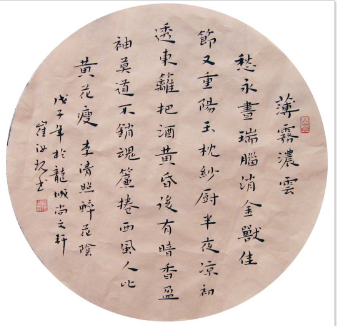 薄霧濃雲
愁永晝瑞腦消金獸佳
節又重陽玉枕紗厨半夜凉初
透東籬把酒黄昏後有暗香盈
袖莫道不銷魂簾捲西風人比
黄花瘦 李清照醉花陰
戊子年於龍城尚文軒